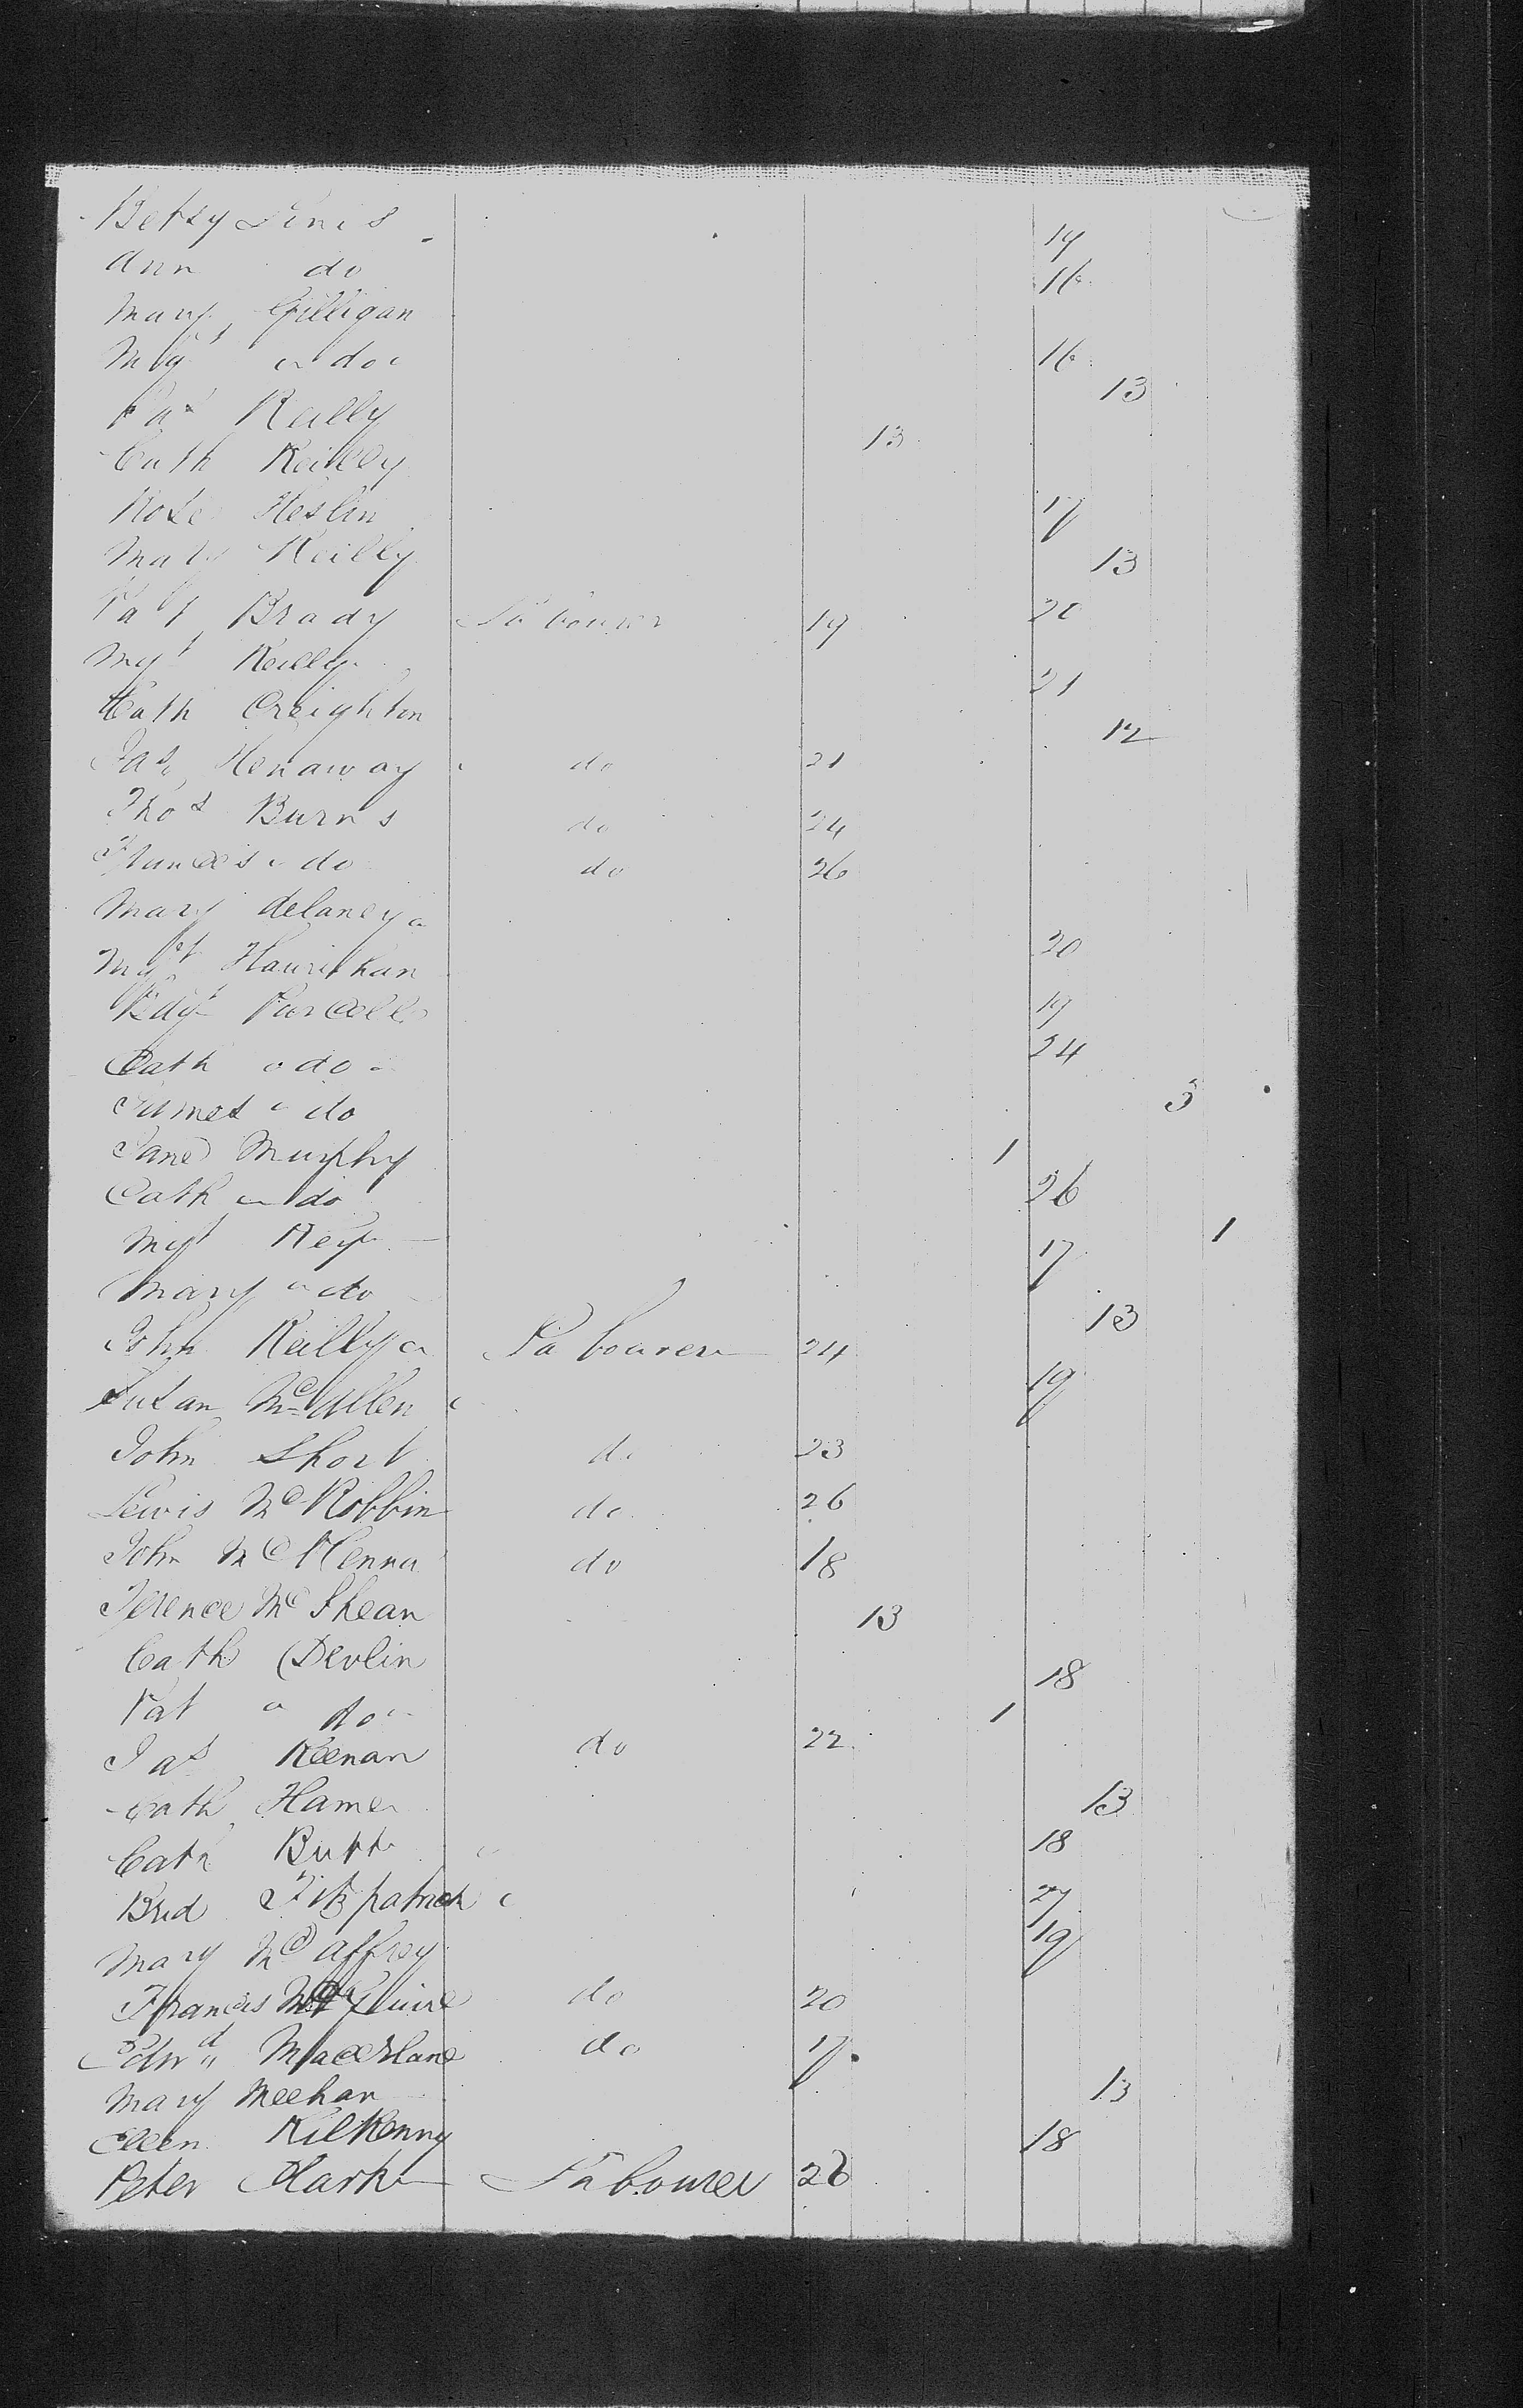 Betsy Linis 19
Ann do 16
Mary Gilligan
Mgt do 16
Pat Reilly 13 13
Cath Reilly
Rose Heslin 17
Mary Reilly 13
Pat Brady Labourer 19 20
Mgt Reilly 21
Cath Creighton 12
Jas Henaway do 21
Thos Burns do 24
Frances do do 26
Mary delaney
Mgt Hourihan 20
Purcell 19
Cath do 24
James do 3
Jane Murphy 1
Cath do 26
Mgt Key 17 1
Mary do 13
John Reilly Labourer 24
Susan McCullen 19
John Short do 23
Lewis McRobbin do 26
John McKenna do 18
Terence McShean 13
Cath Devlin 18
Pat do 1
Jas Keenan do 22
Cath Hamer 13
Cath Butt 18
Brid Fitzpatrick 27
Mary McCaffrey 19
Francis McGuire do 20
Edwd Macerlane do 17
Mary Meehan 13
Ellen Kilkenny 18
Peter Clark Labourer 26